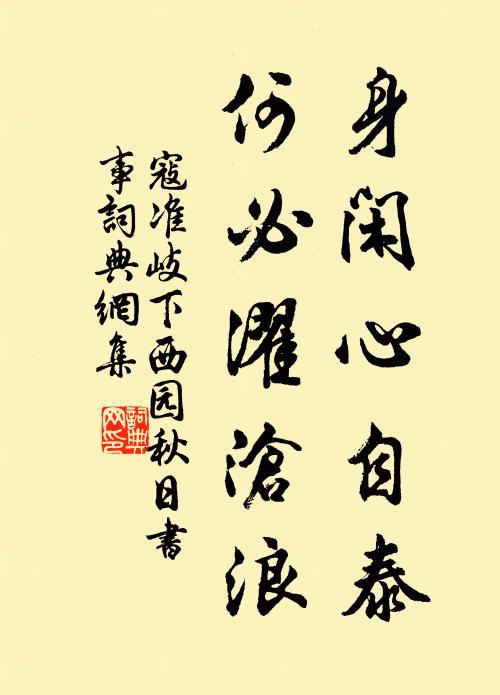 身闲心自泰
何必濯滄浪
寇准岐下西园秋日書
事詞典網集
詞典网印